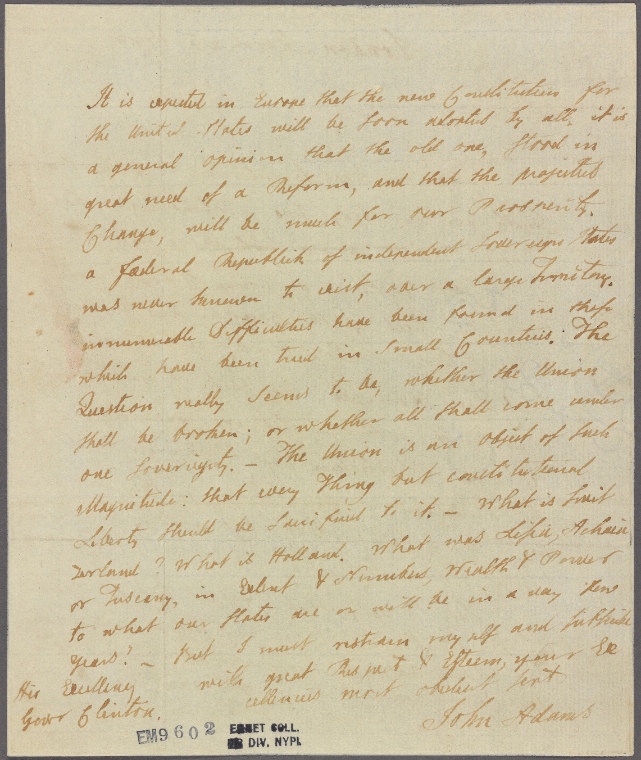 It is expected in Europe that the new Constitution for
the United States will be soon adopted by all, it is
a general opinion that the old one, stood in
great need of a Reform, and that the projected
Change, will be much for our Prosperity.
a fœderal Republick of independent Sovereign States
was never known to exist, over a large Territory.
innumerable Difficulties have been found in those
which have been tried in small Countries. The
Question really seems to be, whether the Union
shall be broken; or whether all shall come under
one Sovereignty. – The Union is an object of such
Magnitude: that every Thing but constitutional
Liberty should be sacrificed to it. – What is Swit
zerland? What is Holland. What was Licia, Achaia
or Tuscany, in Extent & Numbers, Wealth & Power
to what our States are or will be in a very few
years? – But I must restrain myself and subscribe
with great Respect & Esteem, your Ex
cellencies most obedient Servt
John Adams
His Excellency
Govr Clinton.
EM9602
EMMET COLL.
MS DIV. NYPL